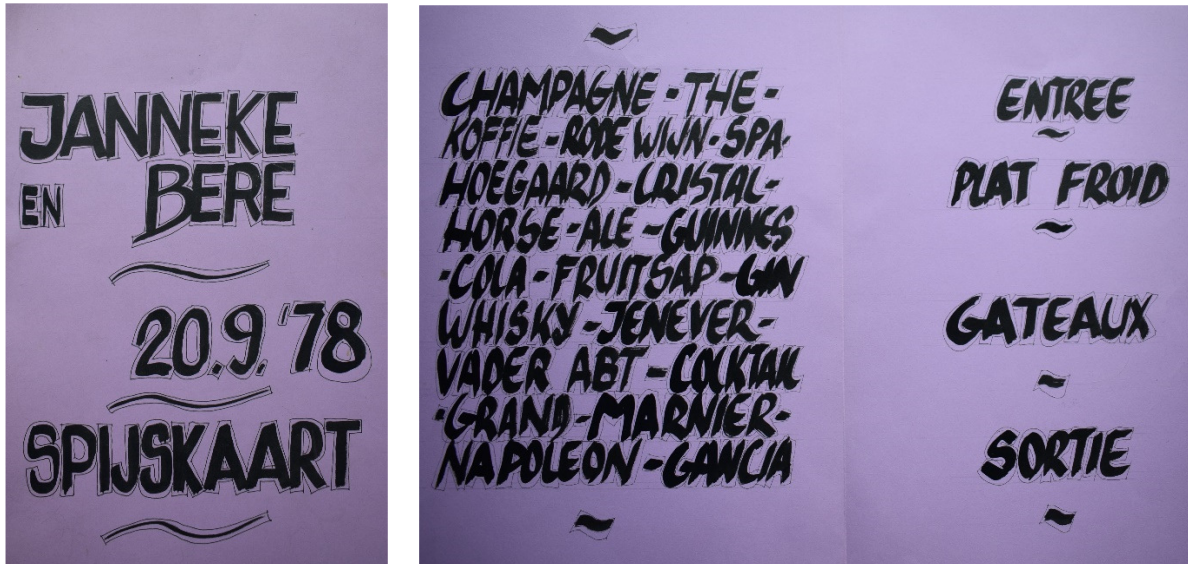 JANNEKE
EN BERE
20.9.'78
SPIJSKAART
CHAMPAGNE - THE -
KOFFIE - RODE WIJN - SPA -
HOEGAARD - CRISTAL -
HORSE - ALE - GUINNES
- COLA - FRUITSAP - GIN
WHISKY - JENEVER -
VADER ABT - COCKTAIL
- GRAND - MARNIER -
NAPOLEON - GANCIA
ENTREE
PLAT FROID
GATEAUX
SORTIE